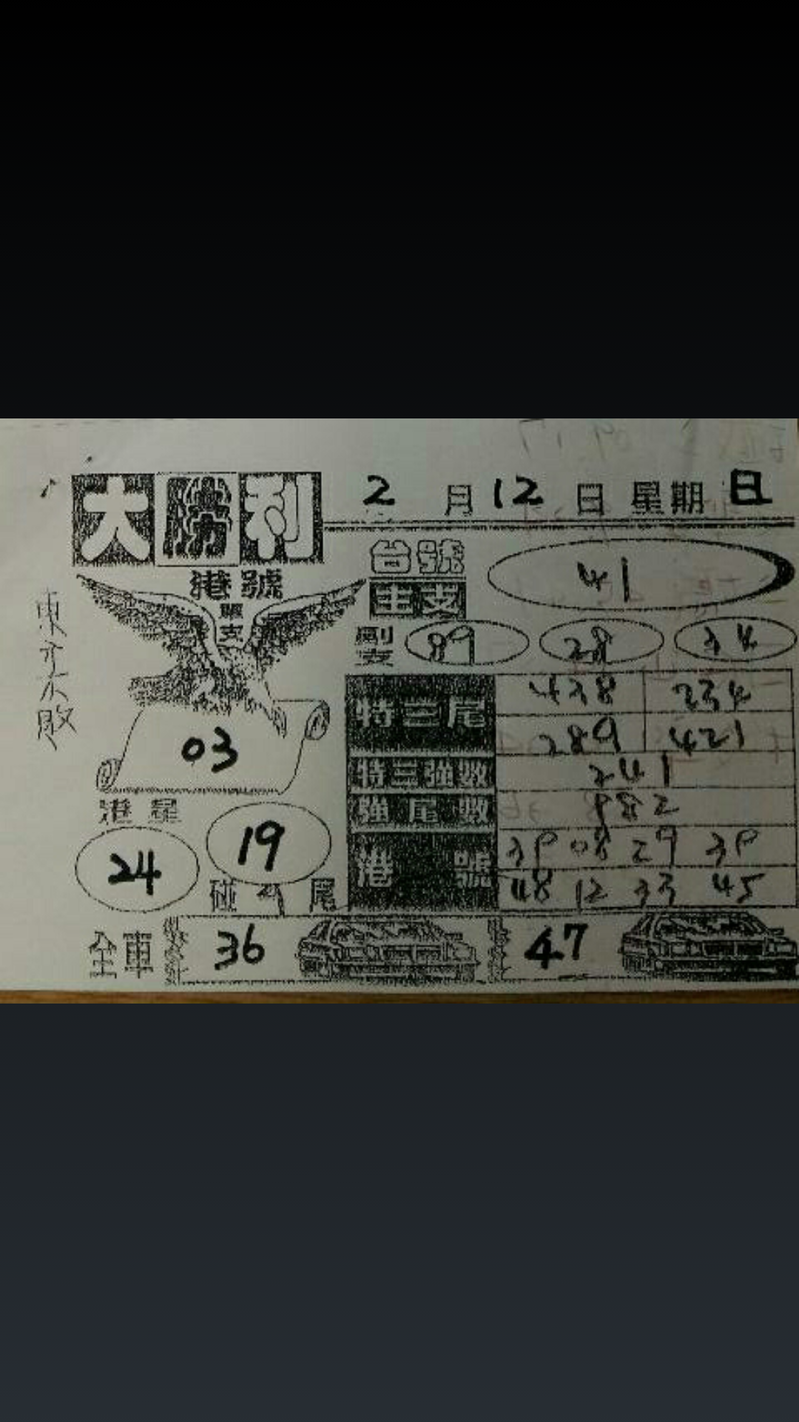 大勝利 2月12日 星期日
港號
單支
台號 41
主支
副支 89 28 34
東方不敗
03
特三尾 438 234
289 421
特三強數 241
強尾數 882
港號 39 08 29 39
48 12 33 45
港星
24 19
碰 9 尾
全車 36 47